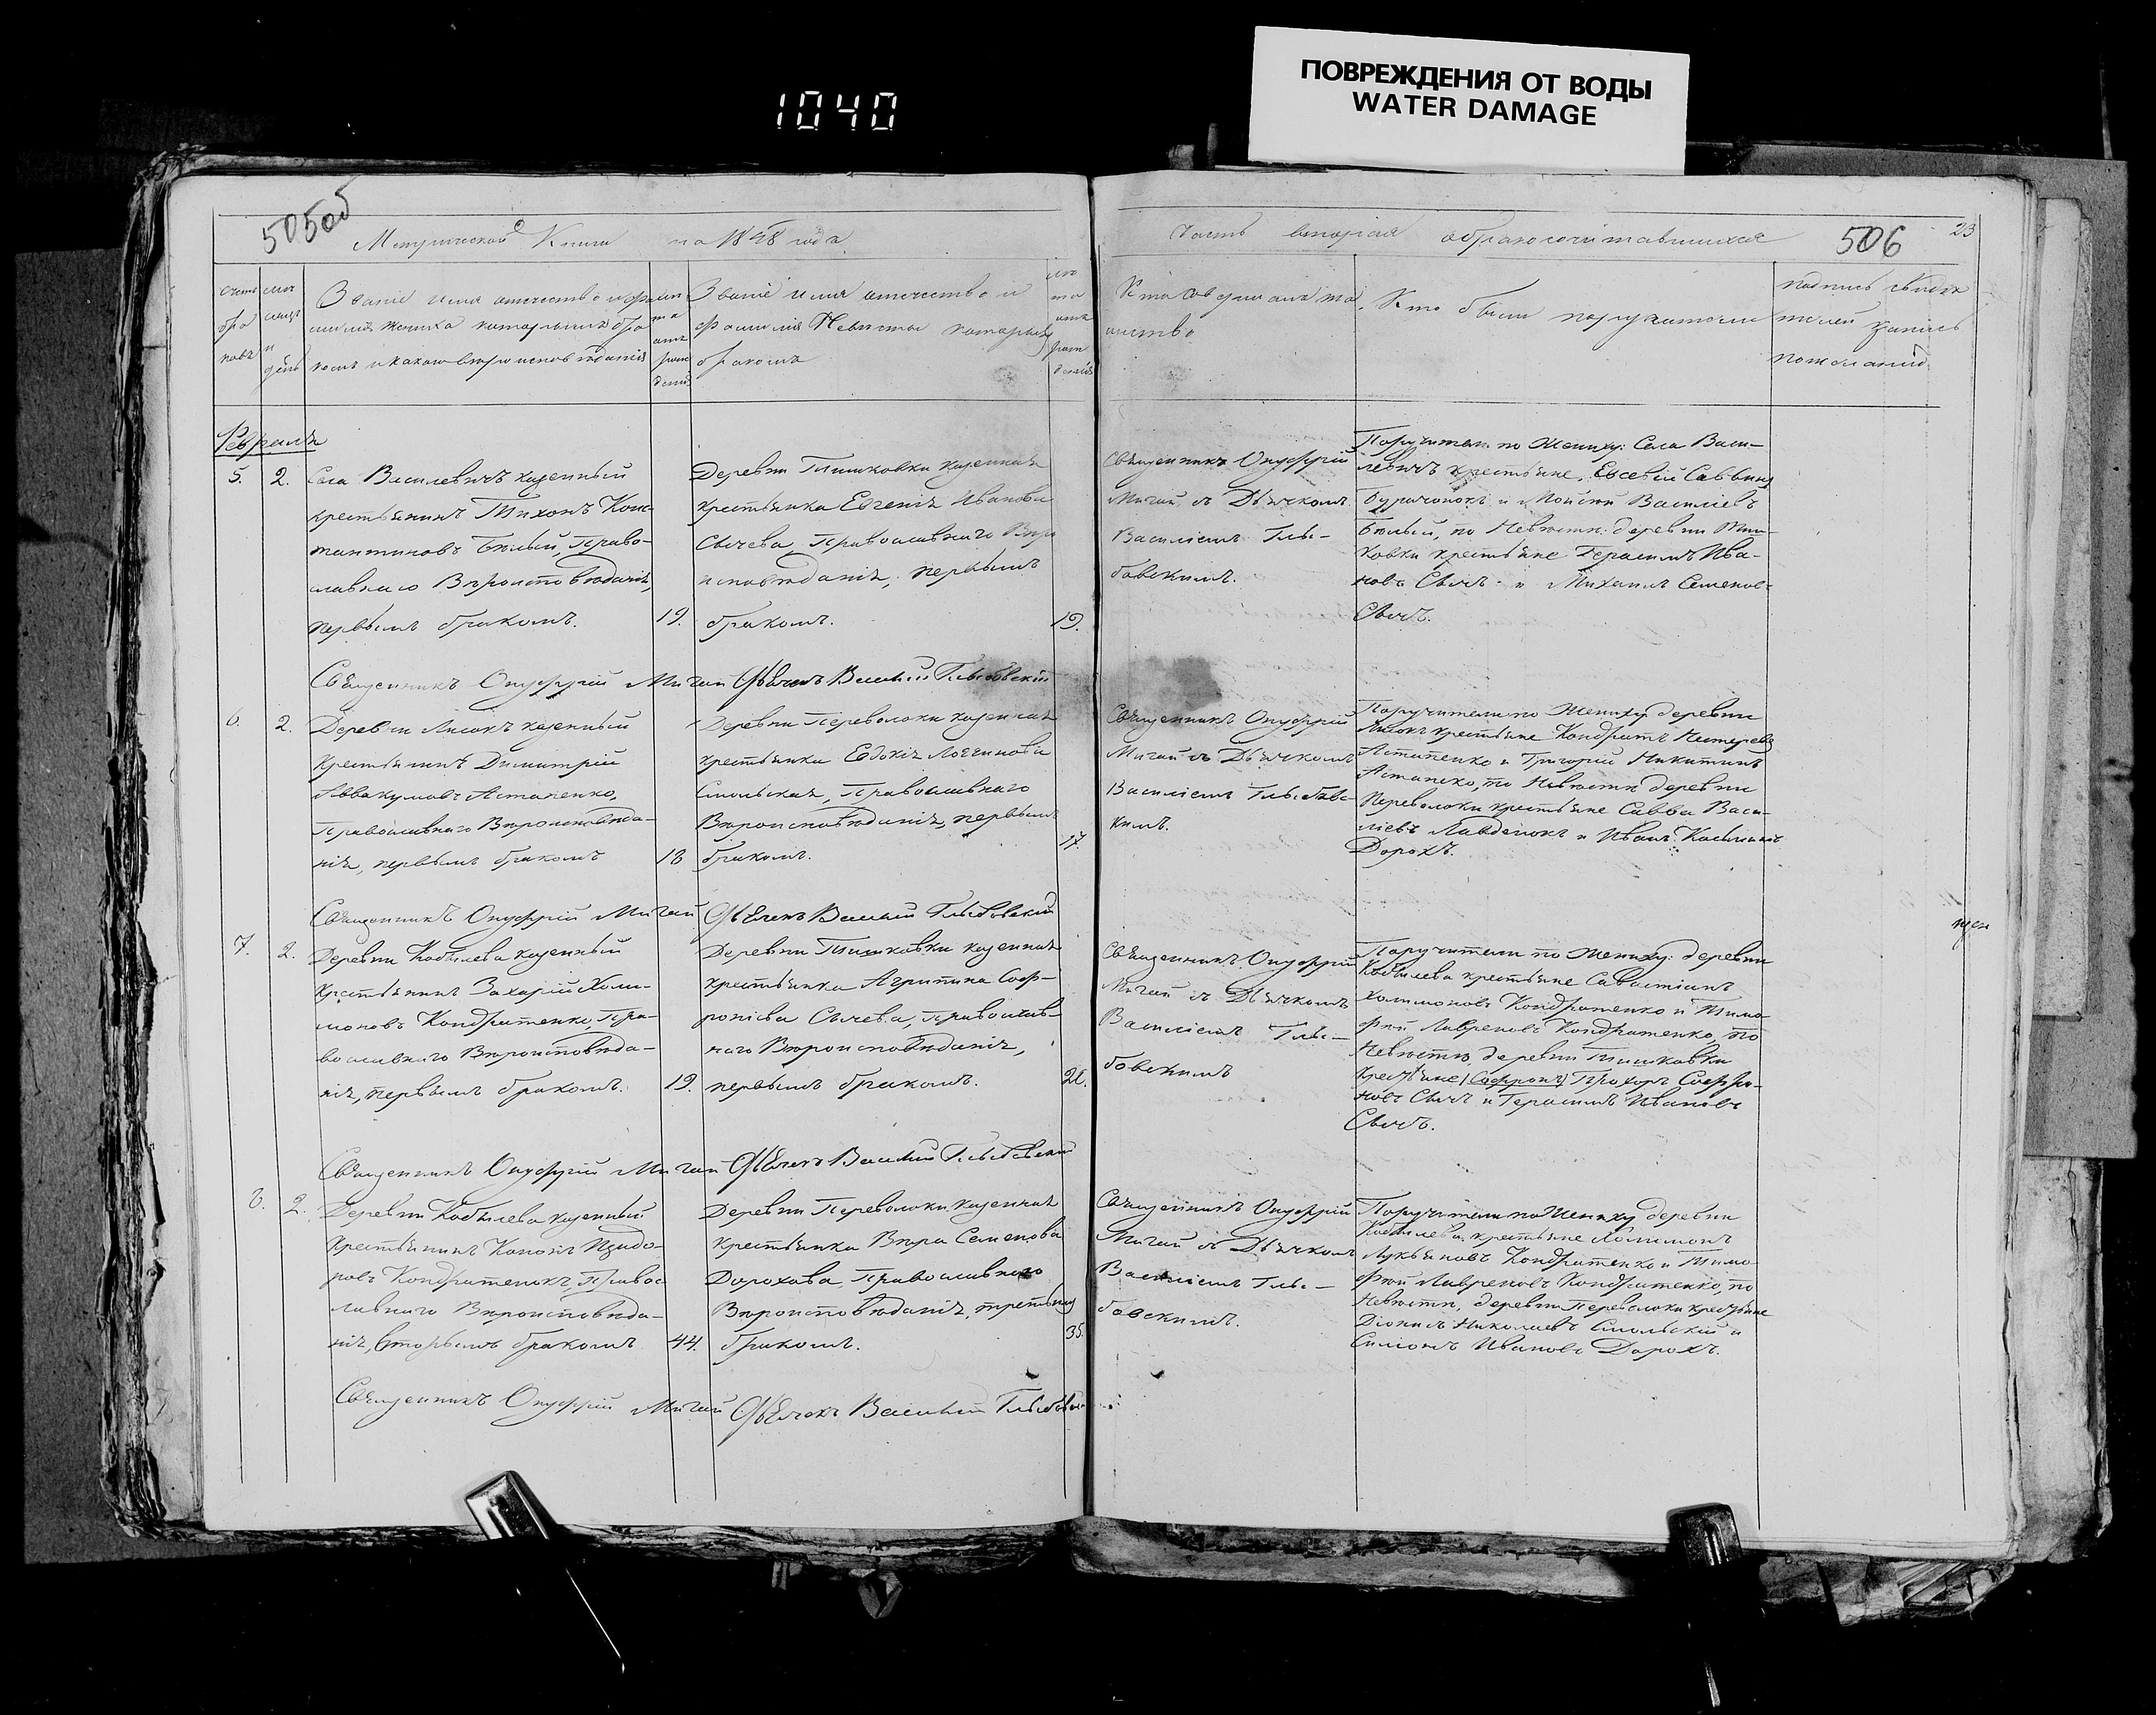 1040
ПОВРЕЖДЕНИЯ ОТ ВОДЫ
WATER DAMAGE
505об
Метрической Книги на 1848 года
Часть вторая о бракосочитавшихся
506
23
Счетъ браковъ
Званіе имя отечество и
жениха которымъ бракомъ и какого вѣроисповѣданія
Званіе имя отечество и
фамилія Невѣсты которымъ
бракомъ
Кто совершалъ таинство
Кто были поручители
подпись свидѣтелей запись
по желанію
Февраль
5. 2.
Села Василевичъ казенный
крестьянинъ Тихонъ Конс-
тантиновъ Бѣлый, Право-
славнаго Вѣроисповѣданія,
первымъ бракомъ. 19.
Деревни Тишковки казенная
крестьянка Евгенія Иванова
Сычева, Православнаго Вѣро
исповѣданія, первымъ
бракомъ. 19.
Священникъ Онуфрій
Мигай съ Дьячкомъ
Василіемъ Глы-
бовскимъ.
Поручители по Жениху: Села Васи-
левичъ крестьяне, Евсевій Саввинъ
и Моисей Василіевъ
Бѣлый, по Невѣсти: деревни Тиш-
ковки крестьяне Герасимъ Ива-
новъ Сычъ и Михаилъ Семеновъ
Сычъ.
Священникъ Онуфрій Мигай Дьячекъ Василій Глыбовскій
6. 2.
Деревни Лисокъ казенный
крестьянинъ Димитрій
Аввакумовъ Астапенко,
Православнаго Вѣроисповѣда-
нія, первымъ бракомъ 18
Деревни Переволоки казенная
крестьянка Евдокія Логгинова
Смольская, Православнаго
Вѣроисповѣданія, первымъ
бракомъ. 17.
Священникъ Онуфрій
Мигай съ Дьячкомъ
Василіемъ Глыбовс-
кимъ.
Поручители по Жениху деревни
Лисокъ крестьяне Кондратъ Нестеровъ
Астапенко и Григорій Никитинъ
Астапенко, по Невѣсти деревни
Переволоки крестьяне Савва Васи-
ліевъ и Иванъ
Дорохъ.
Священникъ Онуфрій Мигай Дьячекъ Василій Глыбовскій
7. 2.
Деревни Кобылева казенный
Крестьянинъ Захарій Холи-
моновъ Кондратенко, Пра-
вославнаго Вѣроисповѣда-
нія, первымъ бракомъ. 19.
Деревни Тишковки казенная
крестьянка Агрипина Соф-
роніева Сычева, Православ-
наго Вѣроисповѣданія,
первымъ бракомъ.
Священникъ Онуфрій
Мигай съ Дьячкомъ
Василіемъ Глы-
бовскимъ
Поручители по Жениху: деревни
Кобылева крестьяне Савастіанъ
Холимоновъ Кондратенко и Тимо-
фей Лавреновъ Кондратенко, по
Невѣсти, деревни Тишковки
Крестьяне (Софронъ) Прохоръ Софро-
новъ Сычъ и Герасимъ Ивановъ
Сычъ.
Священникъ Онуфрій Мигай Дьячекъ Василій Глыбовскій
8. 2.
Деревни Кобылева казенный
Крестьянинъ Кононъ Изидо-
ровъ Кондратенокъ, Правос-
лавнаго Вѣроисповѣда-
нія, вторымъ бракомъ 44.
Деревни Переволоки казенная
крестьянка Вѣра Семенова
Дорохова, Православнаго
Вѣроисповѣданія, третьимъ
бракомъ. 35.
Священникъ Онуфрій
Мигай съ Дьячкомъ
Василіемъ Глы-
бовскимъ.
Поручители по Жениху деревни
Кобылева крестьяне Холимонъ
Лукьяновъ Кондратенко и Тимо-
фей Лавреновъ Кондратенко, по
Невѣсти, деревни Переволоки крестьяне
Діонисъ Николаевъ Смольскій и
Симонъ Ивановъ Дорохъ.
Священникъ Онуфрій Мигай Дьячекъ Василій